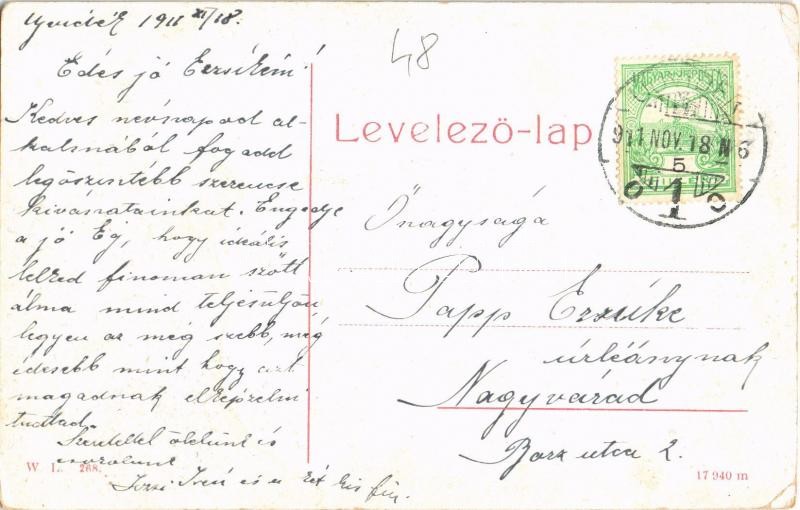 1911 XI/18.
Édes jó Erzsikém!
Kedves névnapod al-
kalmából fogadd
legőszintébb szerencse
kivánatainkat. Engedje
a jó Ég, hogy ideális
lelked finoman szőtt
álma mind teljesüljön
legyen az még szebb, még
édesebb mint hogy azt
magadnak elképzelni
tudtad.
Szeretettel ölelünk és
csókolunk
Irén és a két kis fiu.
W. L. 268.
48
Levelező-lap
MAGYAR KIR. POSTA
911 NOV. 18 N 6
5
1
Őnagysága
Papp Erzsike
úrleánynak
Nagyvárad
Borz utca 2.
17 940 m